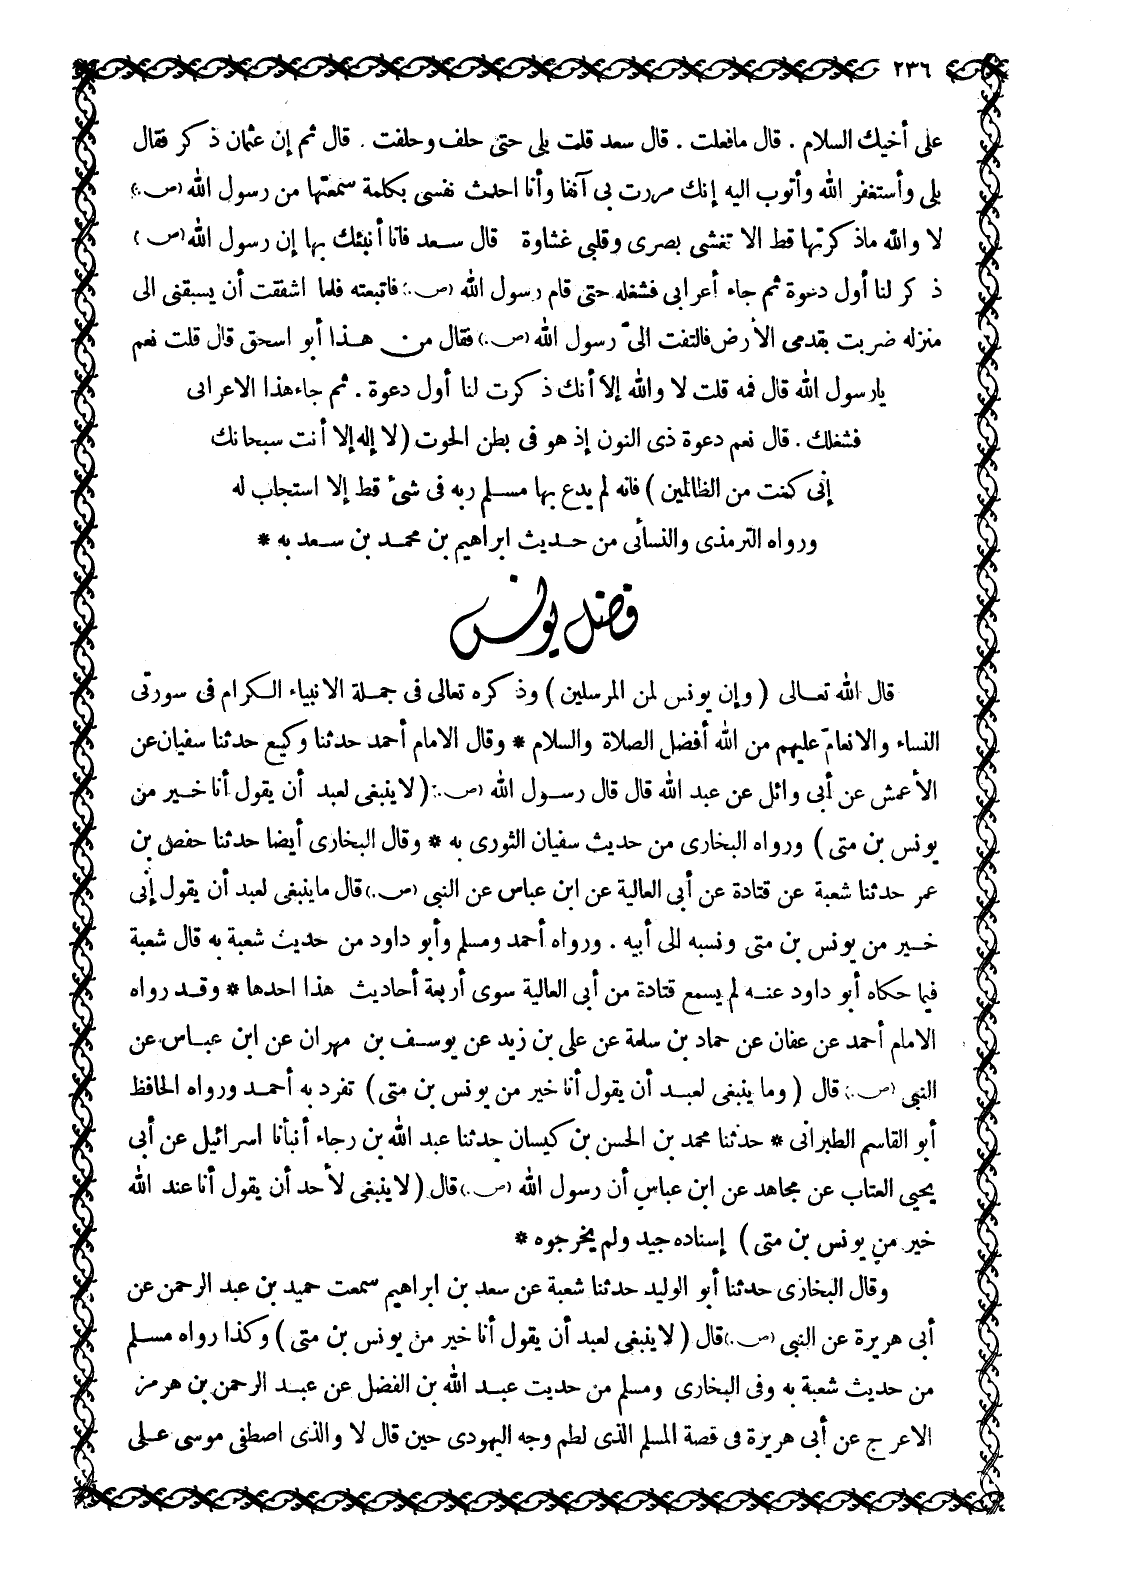 ٢٣٦
على أخيك السلام . قال مافعلت . قال سعد قلت بلى حتى حلف وحلفت . قال ثم إن عثمان ذكر فقال
بلى وأستغفر الله وأتوب اليه إنك مررت بى آنفا وأنا احدث نفسى بكلمة سمعتها من رسول الله (ص.)
لا والله ماذكرتها قط الا تغشى بصرى وقلبى غشاوة قال سعد فانا أنبئك بها إن رسول الله (ص )
ذكر لنا أول دعوة ثم جاء أعرابى فشغله حتى قام رسول الله (ص.) فاتبعته فلما اشفقت أن يسبقنى الى
منزله ضربت بقدمى الأرض فالتفت الىّ رسول الله (ص.) فقال من هذا أبو اسحق قال قلت نعم
يارسول الله قال فمه قلت لا والله إلا أنك ذكرت لنا أول دعوة . ثم جاء هذا الاعرابى
فشغلك . قال نعم دعوة ذى النون إذ هو فى بطن الحوت (لا إله إلا أنت سبحانك
إنى كنت من الظالمين ) فانه لم يدع بها مسلم ربه فى شىء قط إلا استجاب له
ورواه الترمذى والنسأنى من حديث ابراهيم بن محمد بن سعد به *
فضل يونس
قال الله تعالى ( وإن يونس لمن المرسلين ) وذكره تعالى فى جملة الانبياء الكرام فى سورتى
النساء والانعام عليهم من الله أفضل الصلاة والسلام * وقال الامام أحمد حدثنا وكيع حدثنا سفيان عن
الأعمش عن أبى وائل عن عبد الله قال قال رسول الله (ص.) (لاينبغى لعبد أن يقول أنا خير من
يونس بن متى ) ورواه البخارى من حديث سفيان الثورى به * وقال البخارى أيضا حدثنا حفص بن
عمر حدثنا شعبة عن قتادة عن أبى العالية عن ابن عباس عن النبى (ص.) قال ماينبغى لعبد أن يقول إنى
خير من يونس بن متى ونسبه الى أبيه . ورواه أحمد ومسلم وأبو داود من حديث شعبة به قال شعبة
فيما حكاه أبو داود عنه لم يسمع قتادة من أبى العالية سوى أربعة أحاديث هذا احدها * وقد رواه
الامام أحمد عن عفان عن حماد بن سلمة عن على بن زيد عن يوسف بن مهران عن ابن عباس عن
النبى (ص.) قال ( وما ينبغى لعبد أن يقول أنا خير من يونس بن متى ) تفرد به أحمد ورواه الحافظ
أبو القاسم الطبرانى * حدثنا محمد بن الحسن بن كيسان حدثنا عبد الله بن رجاء أنبأنا اسرائيل عن أبى
يحيى العتاب عن مجاهد عن ابن عباس أن رسول الله (ص.) قال ( لاينبغى لأحد أن يقول أنا عند الله
خير من يونس بن متى ) إسناده جيد ولم يخرجوه *
وقال البخارى حدثنا أبو الوليد حدثنا شعبة عن سعد بن ابراهيم سمعت حميد بن عبد الرحمن عن
أبى هريرة عن النبى (ص.) قال ( لاينبغى لعبد أن يقول أنا خير من يونس بن متى ) وكذا رواه مسلم
من حديث شعبة به وفى البخارى ومسلم من حديت عبد الله بن الفضل عن عبد الرحمن بن هرمز
الاعرج عن أبى هريرة فى قصة المسلم الذى لطم وجه اليهودى حين قال لا والذى اصطفى موسى على